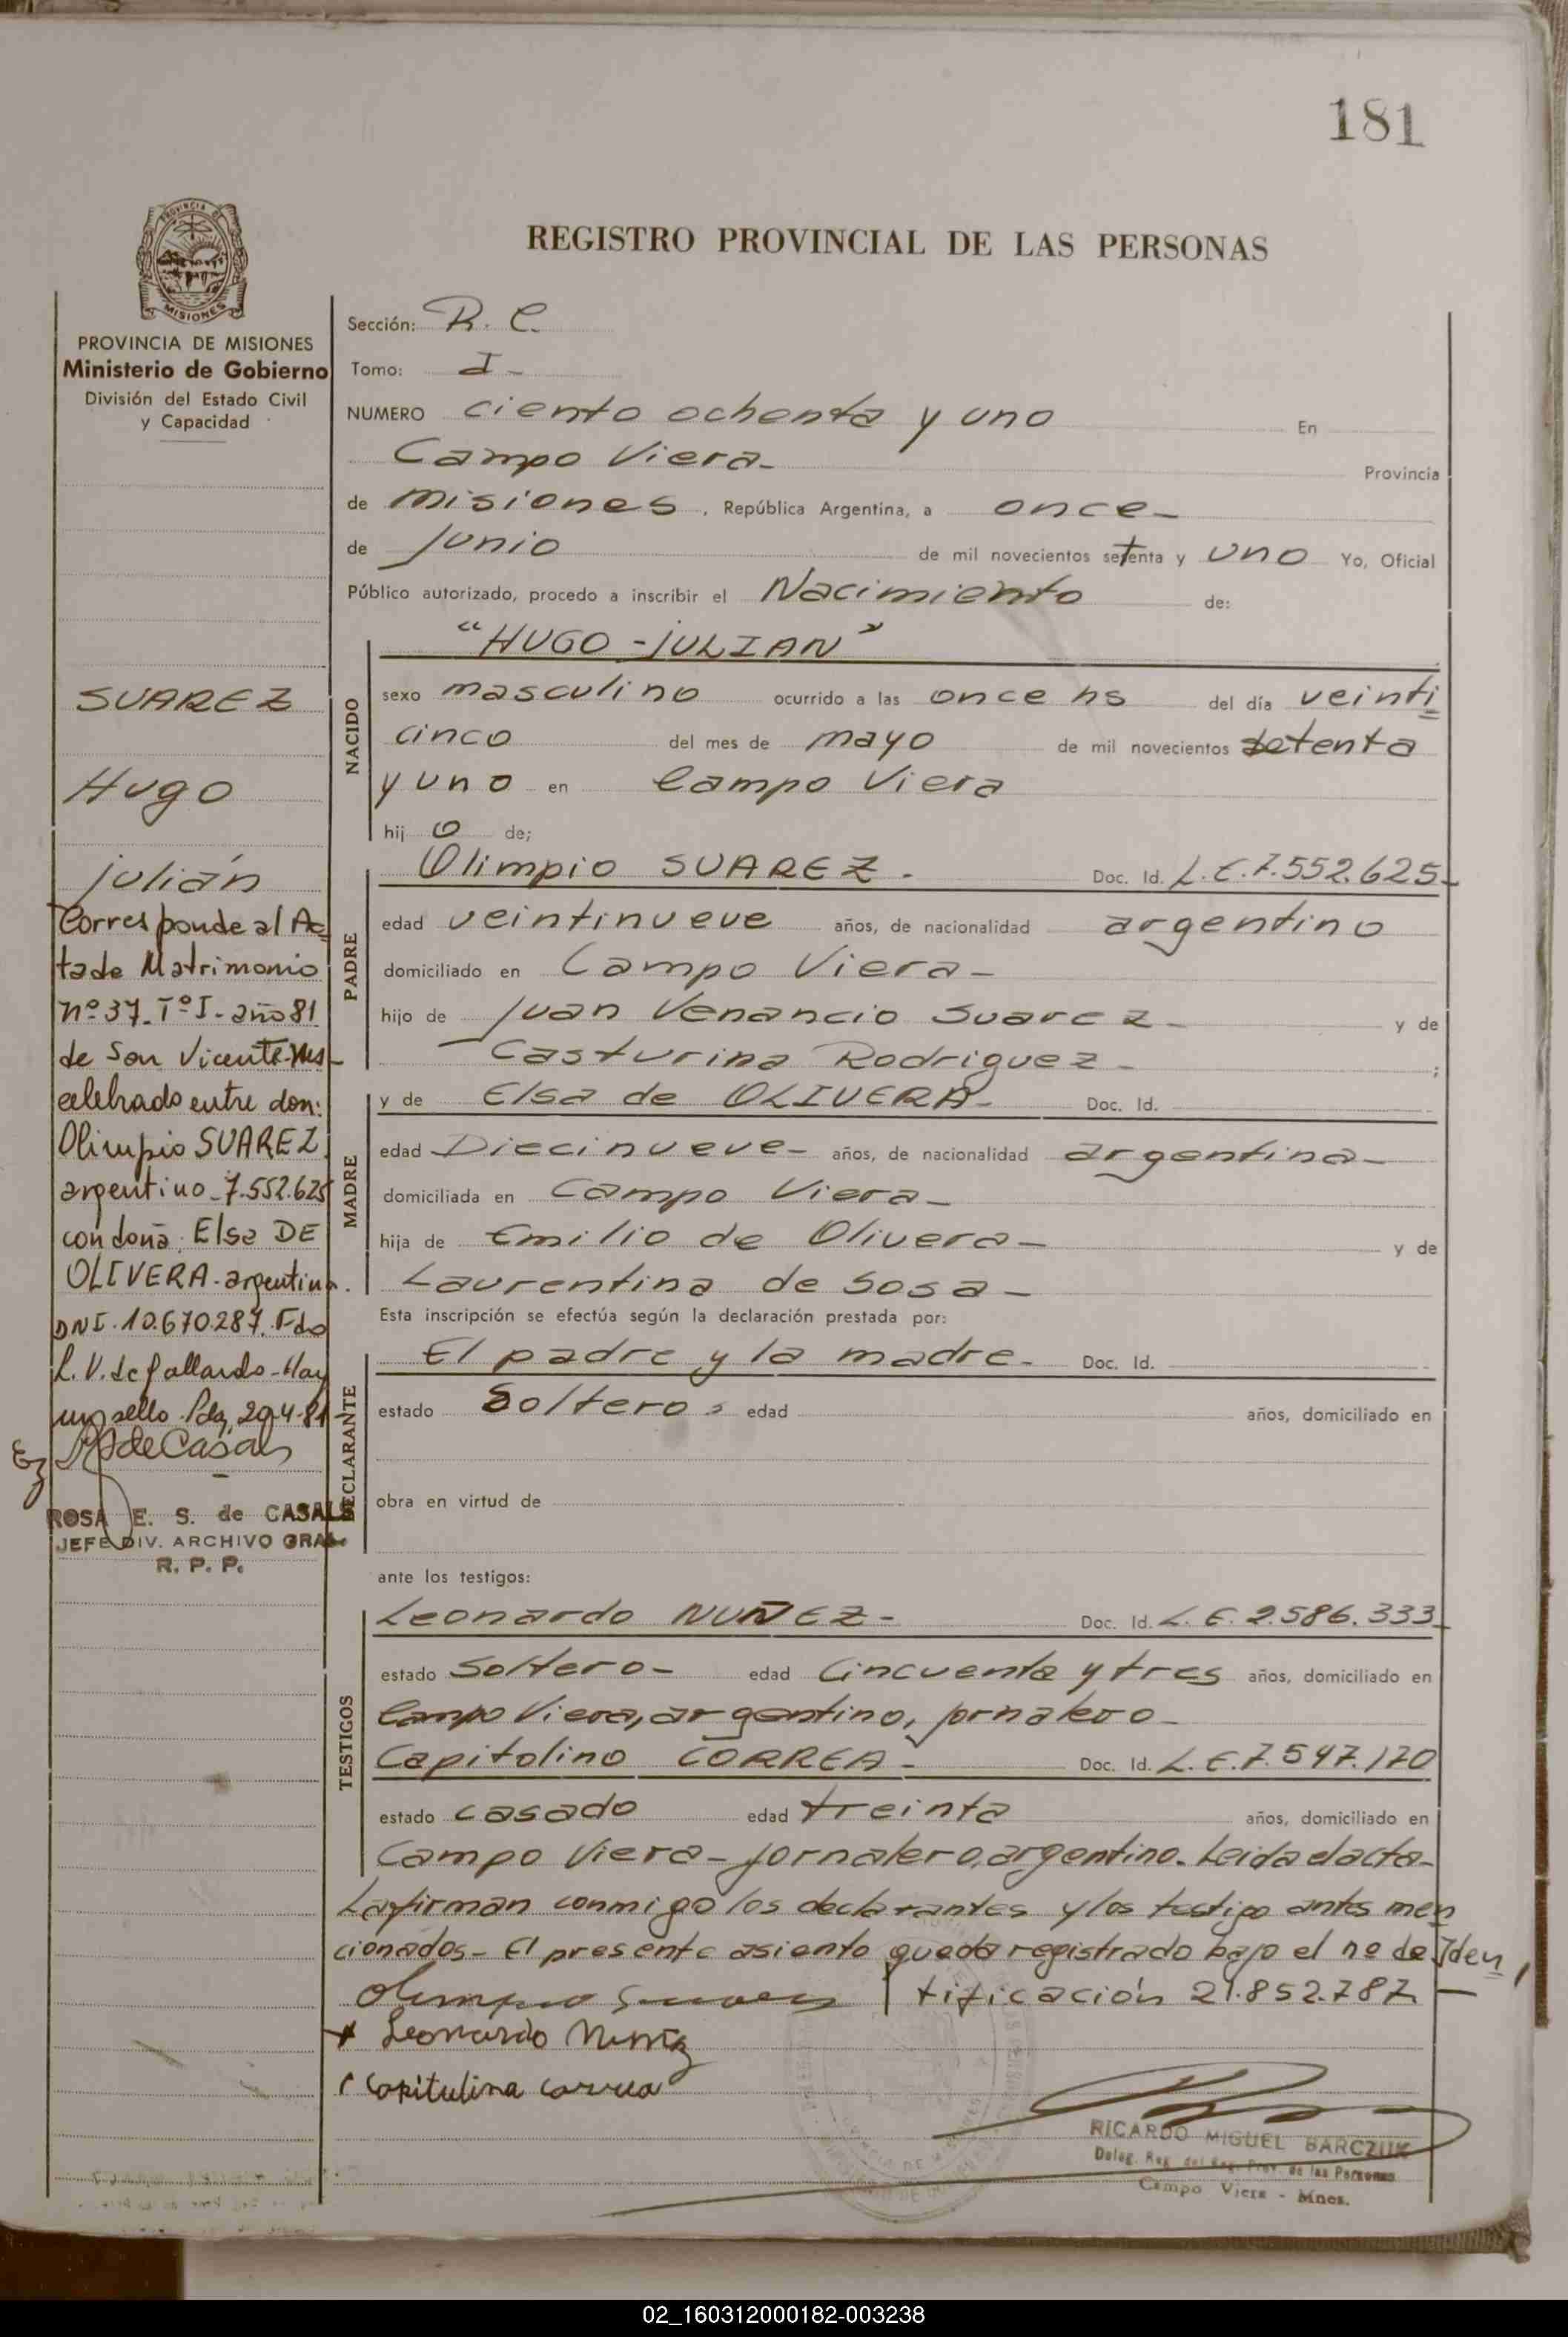 181
PROVINCIA DE
MISIONES
REGISTRO PROVINCIAL DE LAS PERSONAS
PROVINCIA DE MISIONES
Ministerio de Gobierno
División del Estado Civil
y Capacidad
SUAREZ
Hugo
Julián
Corresponde al Ac
ta de Matrimonio
Nº 37 - Tº I - año 81
de San Vicente - Mis
celebrado entre don:
Olimpio SUAREZ
argentino - 7.552.625
con doña: Elsa DE
OLIVERA - argentina.
DNI. 10.670.287. Fdo
L. V. de Gallardo - Hay
un sello. Pdas, 20-4-81
RSdeCasals
ROSA E. S. de CASALS
JEFE DIV. ARCHIVO GRAL.
R. P. P.
Sección: R. C.
Tomo: I -
NUMERO ciento ochenta y uno En
Campo Viera - Provincia
de Misiones, República Argentina, a once -
de Junio de mil novecientos setenta y uno Yo, Oficial
Público autorizado, procedo a inscribir el Nacimiento de:
NACIDO
"HUGO - JULIAN"
sexo masculino ocurrido a las once hs del día veinti
cinco del mes de mayo de mil novecientos setenta
y uno en Campo Viera
hij o de;
PADRE
Olimpio SUAREZ - Doc. Id. L.E. 7.552.625 -
edad veintinueve años, de nacionalidad argentino
domiciliado en Campo Viera -
hijo de Juan Venancio Suarez - y de
Casturina Rodriguez - ;
MADRE
y de Elsa de OLIVERA - Doc. Id.
edad Diecinueve - años, de nacionalidad argentina -
domiciliada en Campo Viera -
hija de Emilio de Olivera - y de
Laurentina de Sosa -
Esta inscripción se efectúa según la declaración prestada por:
DECLARANTE
El padre y la madre - Doc. Id.
estado Soltero s edad años, domiciliado en
obra en virtud de
ante los testigos:
TESTIGOS
Leonardo NUÑEZ - Doc. Id. L.E. 2.586.333 -
estado Soltero - edad Cincuenta y tres años, domiciliado en
Campo Viera, argentino, jornalero -
Capitolino CORREA - Doc. Id. L.E. 7.547.170
estado casado edad treinta años, domiciliado en
Campo Viera - jornalero, argentino. Leida el acta -
La firman conmigo los declarantes y los testigo antes men
cionados - El presente asiento queda registrado bajo el nº de Iden
tificación 21.852.787 -
Olimpio Suarez
Leonardo Nuñez
Capitulina correa
RICARDO MIGUEL BARCZUK
Deleg. Reg. del Reg. Prov. de las Personas
Campo Viera - Mnes.
02_160312000182-003238